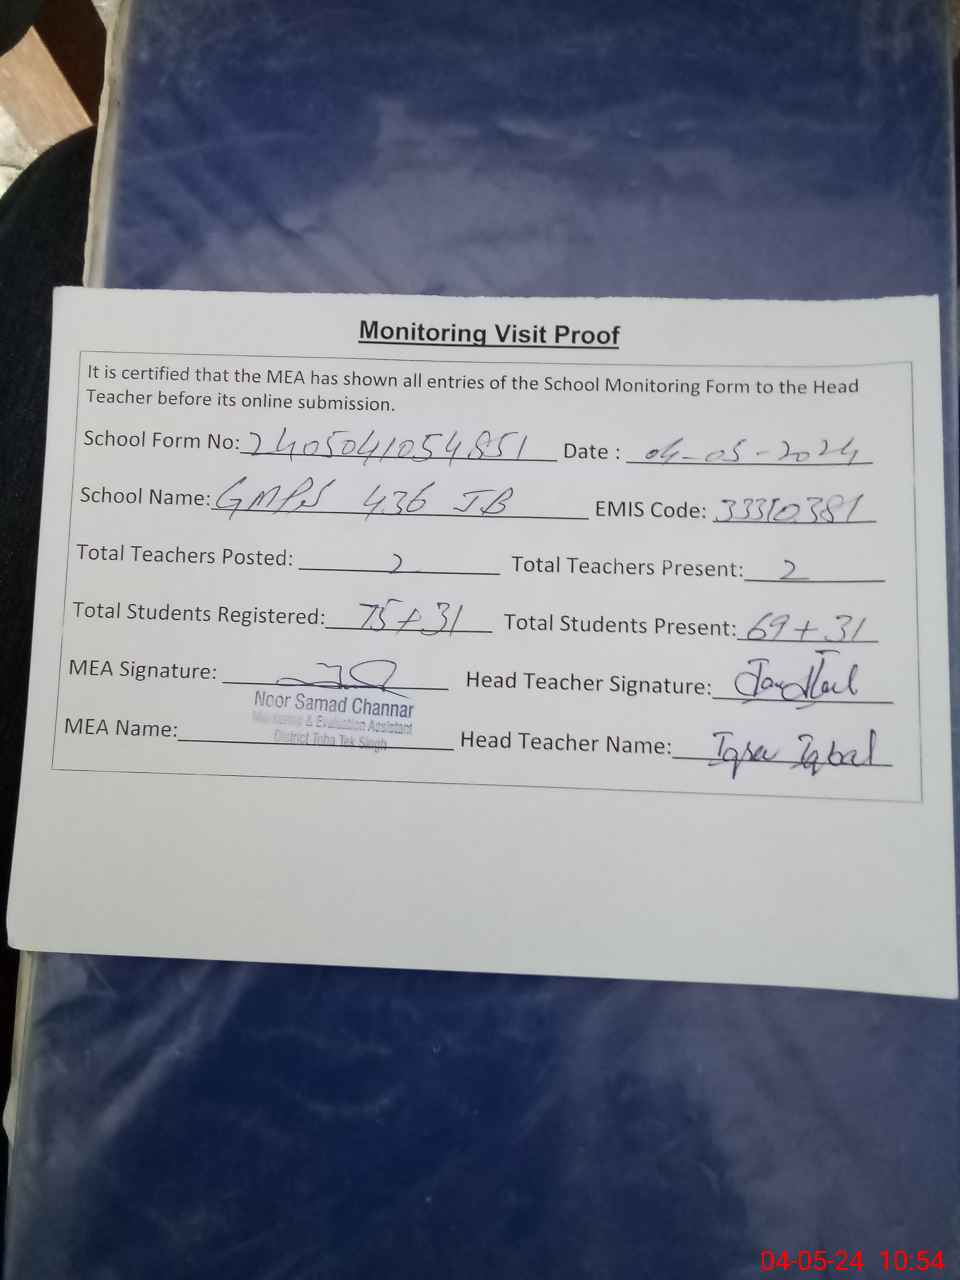 Monitoring Visit Proof
It is certified that the MEA has shown all entries of the School Monitoring Form to the Head
Teacher before its online submission.
School Form No: 2405041054851 Date : 04-05-2024
School Name: GMPS 436 JB EMIS Code: 33310381
Total Teachers Posted: 2 Total Teachers Present: 2
Total Students Registered: 75+31 Total Students Present: 69+31
MEA Signature: Head Teacher Signature:
Noor Samad Channar
Monitoring & Evaluation Assistant
District Toba Tek Singh
MEA Name: Head Teacher Name: Iqra Iqbal
04-05-24 10:54